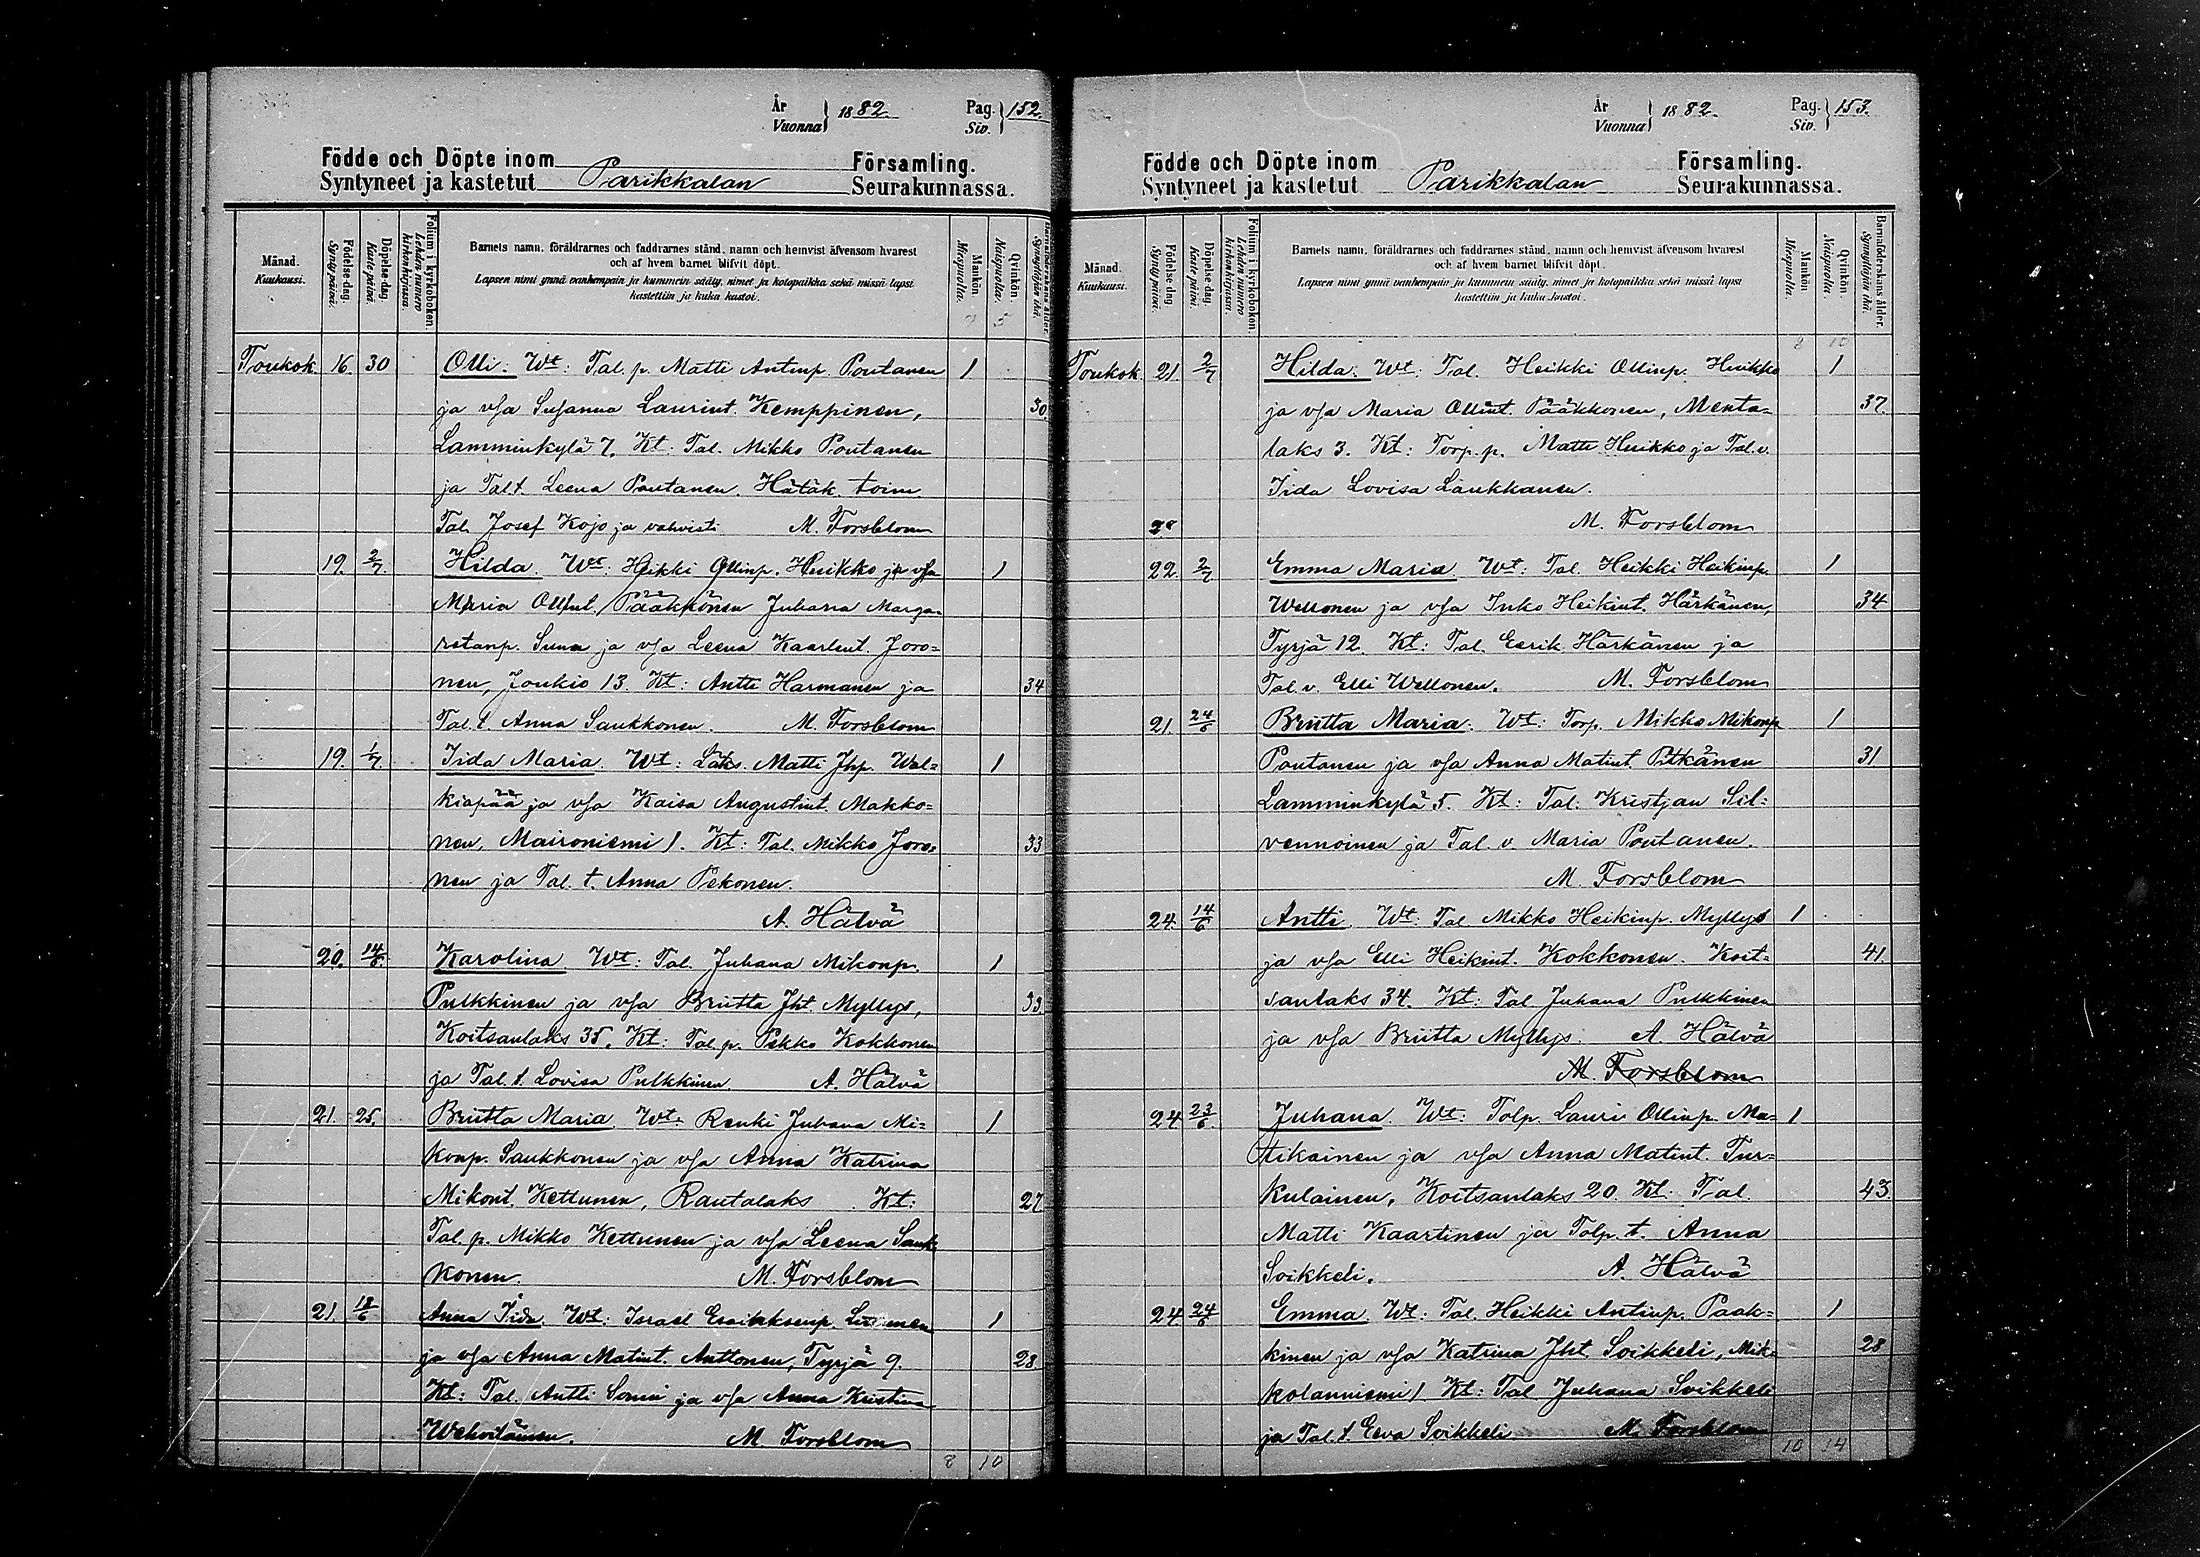 År
Vuonna } 1882. Pag.
Siv. } 152.
Födde och Döpte inom Församling.
Syntyneet ja kastetut Parikkalan Seurakunnassa.
Månad.
Kuukausi.
Födelse-dag.
Synty päivä.
Döpelse-dag.
Kaste päivä.
Folium i kyrkoboken.
Lehden numero kirkonkirjassa.
Barnets namn, föräldrarnes och faddrarnes stånd, namn och hemvist äfvensom hvarest
och af hvem barnet blifvit döpt.
Lapsen nimi ynnä vanhempain ja kummein sääty, nimet ja kotopaikka sekä missä lapsi
kastettiin ja kuka kastoi.
Mankön.
Miespuolia.
Qvinkön.
Naispuolia.
Barnaföderskans ålder.
Synnyttäjän ikä.
7 5
Toukok. 16. 30 Olli. Wt: Tal. p. Matti Antinp. Poutanen 1
ja vsa Susanna Laurint. Kemppinen, 30.
Lamminkylä 7. Kt: Tal. Mikko Poutanen
ja Tal.t. Leena Poutanen. Hätäk. toim.
Tal. Josef Kojo ja vahvisti M. Forsblom
19. 2/7. Hilda. Wt: Heikki Ollinp. Huikko ja vsa 1
Maria Ollint. Pääkkönen Juhana Marga-
retanp. Suna ja vsa Leena Kaarlent. Joro=
nen, Joukio 13. Kt: Antti Harmanen ja 34
Tal. t. Anna Saukkonen. M. Forsblom
19. 1/7. Iida Maria. Wt: Läks. Matti Jhp. Wal= 1
kiapää ja vsa Kaisa Augustint. Makko=
nen, Maironiemi 1. Kt: Tal. Mikko Joro= 33
nen ja Tal. t. Anna Pekonen.
A. Hälvä
20. 14/6. Karolina Wt: Tal. Juhana Mikonp. 1
Pulkkinen ja vsa Briitta Jht. Myllys, 33.
Koitsanlaks 35. Kt: Tal. p. Pekko Kokkonen
ja Tal. t. Lovisa Pulkkinen. A. Hälvä
21. 25. Briitta Maria Wt: Renki Juhana Mi= 1
konp. Saukkonen ja vsa Anna Katrina
Mikont. Kettunen, Rautalaks Kt: 27
Tal. p. Mikko Kettunen ja vsa Leena Sauk
konen. M. Forsblom
21. 18/6 Anna Iida. Wt: Israel 1
ja vsa Anna Matint. Anttonen, Tyrjä 9. 28.
Kt: Tal. Antti Somi ja vsa Anna Kristina
M. Forsblom
8 10
År
Vuonna } 1882. Pag.
Siv. } 153.
Födde och Döpte inom Församling.
Syntyneet ja kastetut Parikkalan Seurakunnassa.
Månad.
Kuukausi.
Födelse-dag.
Synty päivä.
Döpelse-dag.
Kaste päivä.
Folium i kyrkoboken.
Lehden numero kirkonkirjassa.
Barnets namn, föräldrarnes och faddrarnes stånd, namn och hemvist äfvensom hvarest
och af hvem barnet blifvit döpt.
Lapsen nimi ynnä vanhempain ja kummein sääty, nimet ja kotopaikka sekä missä lapsi
kastettiin ja kuka kastoi.
Mankön.
Miespuolia.
Qvinkön.
Naispuolia.
Barnaföderskans ålder.
Synnyttäjän ikä.
8 10
Toukok. 21. 2/7 Hilda. Wt: Tal. Heikki Ollinp. Huikko 1
ja vsa Maria Ollint. Pääkkönen, Menta= 37.
laks 3. Kt: Torp. p. Matti Huikko ja Tal. v.
Iida Lovisa Laukkanen.
M. Forsblom
22. 2/7 Emma Maria. Wt: Tal. Heikki Heikinp. 1
Wellonen ja vsa Inko Heikint. Härkänen, 34
Tyrjä 12. Kt: Tal. Eerik Härkänen ja
Tal. v. Elli Wellonen. M. Forsblom
21. 24/6 Briitta Maria. Wt: Torp. Mikko Mikonp 1
Poutanen ja vsa Anna Matint. Pitkänen 31
Lamminkylä 5. Kt: Tal. Kristjan Sil=
vennoinen ja Tal. v. Maria Poutanen.
M. Forsblom
24. 14/6 Antti. Wt: Tal. Mikko Heikinp. Myllys 1
ja vsa Elli Heikint. Kokkonen. Koit= 41.
sanlaks 34. Kt: Tal. Juhana Pulkkinen
ja vsa Briitta Myllys. A. Hälvä
M. Forsblom
24 23/6 Juhana. Wt: Tolp. Lauri Ollinp. Ma= 1
tikainen ja vsa Anna Matint. Tur=
kulainen, Koitsanlaks 20. Kt: Tal. 43.
Matti Kaartinen ja Tolp. t. Anna
Soikkeli. A. Hälvä
24 24/6 Emma. Wt: Tal. Heikki Antinp. Paak= 1
kinen ja vsa Katrina Jht. Soikkeli, Mik= 28
kolanniemi 1. Kt: Tal Juhana Soikkeli
ja Tal. t. Eeva Soikkeli M. Forsblom
10 14